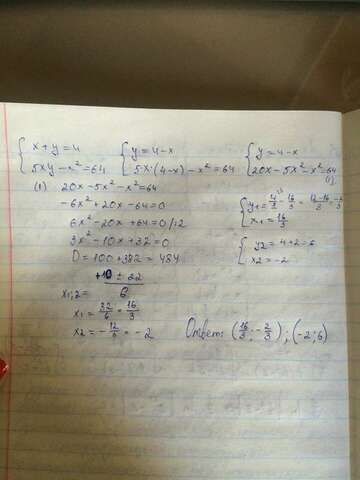 {x+y=4 {y=4-x {y=4-x
{5xy-x²=64 {5x·(4-x)-x²=64 {20x-5x²-x²=64
(1) 20x-5x²-x²=64 (1)
-6x²+20x-64=0
6x²-20x+64=0 /:2
3x²-10x+32=0
D=100+382=484
x1;2= +10±22/6
x1=32/6=16/3
x2=-12/6=-2
{y1=4/1-16/3=12-16/3=-4/3
{x1=16/3
{y2=4+2=6
{x2=-2
Ответ: (16/3;-2/3);(-2;6)